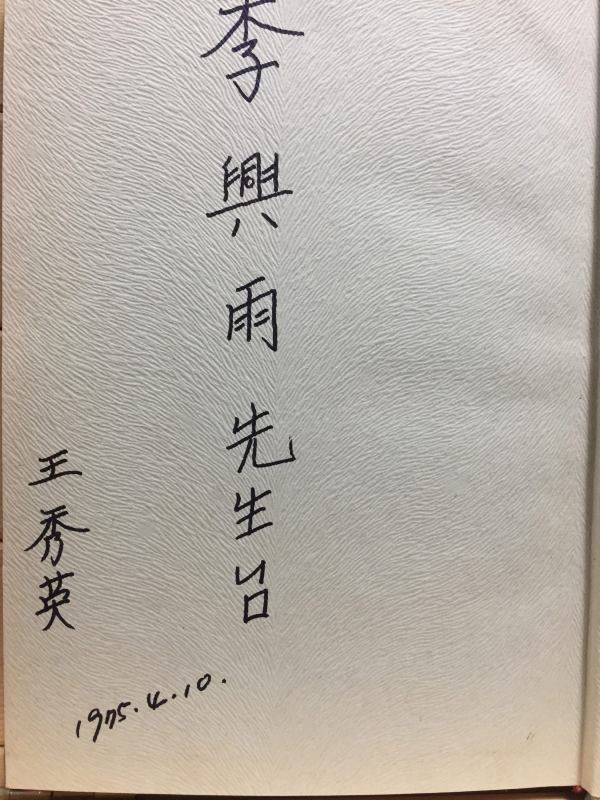 李興雨先生님
王秀英
1975.4.10.